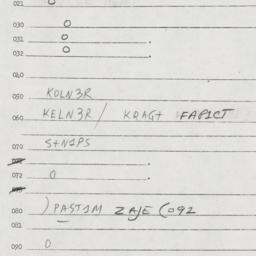 021 0
030 0
031 0
032 0
040
050 KOLN3R
060 KELN3R/ KRAGt FAPICT
070 S+N1PS
072 0
080 )PASTIM ZAJE (092
081
090 0